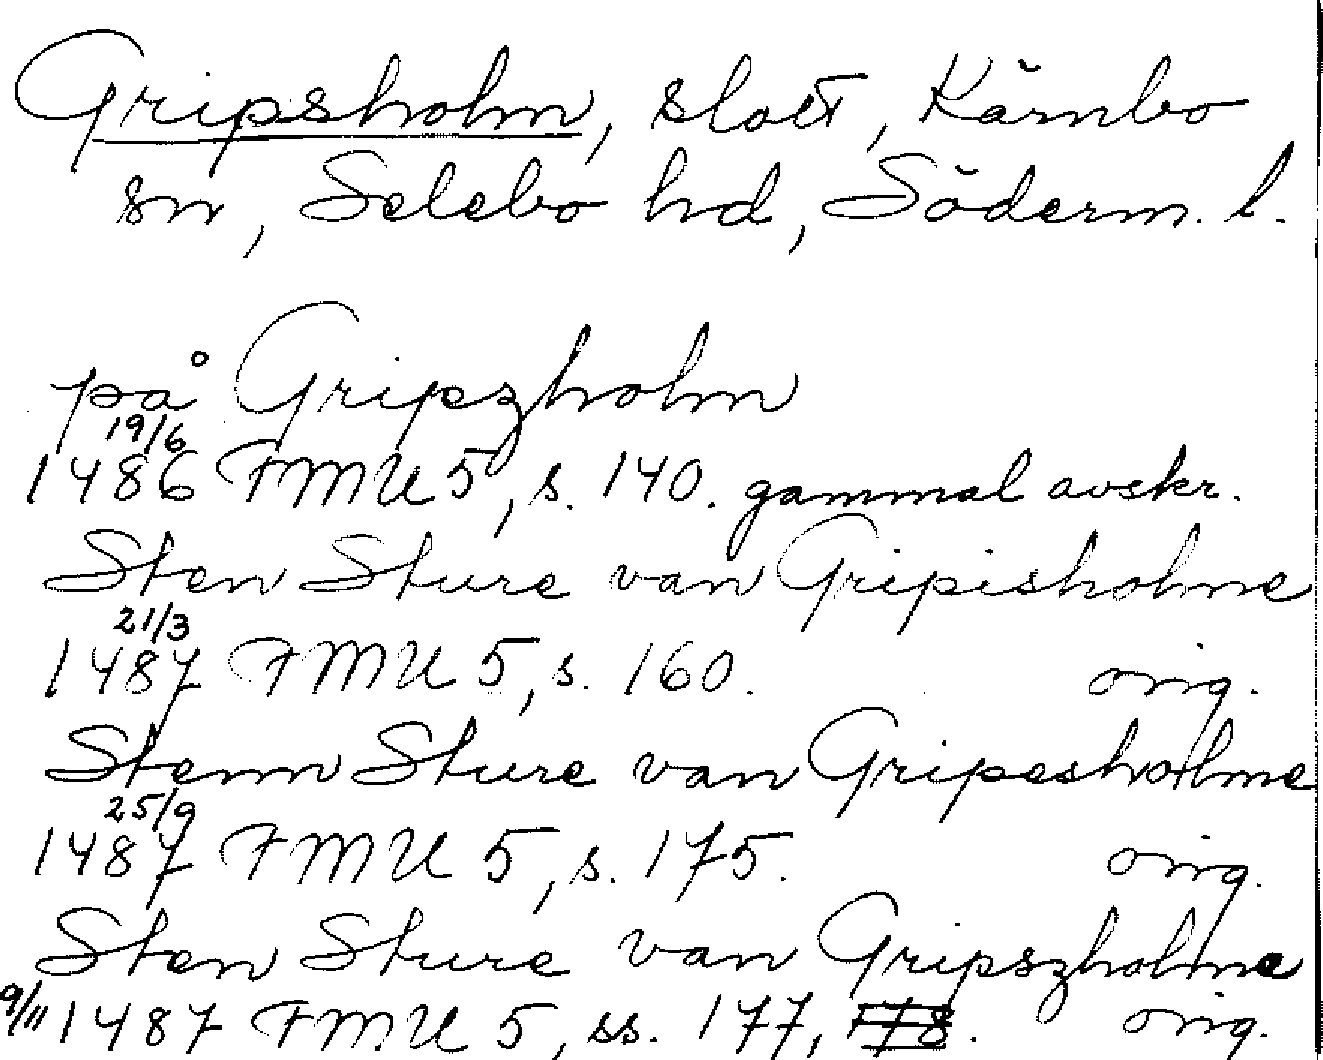 Gripsholm, slott, Kärnbo
sn, Selebo hd, Söderm. l.
på Gripzholm
19/6
1486 FMU 5, s. 140. gammal avskr.
Sten Sture van Gripisholme
21/3
1487 FMU 5, s. 160. orig.
Stenn Sture van Gripesholme
25/9
1487 FMU 5, s. 175. orig.
Sten Sture van Gripszholme
9/11 1487 FMU 5, ss. 177, 178. orig.